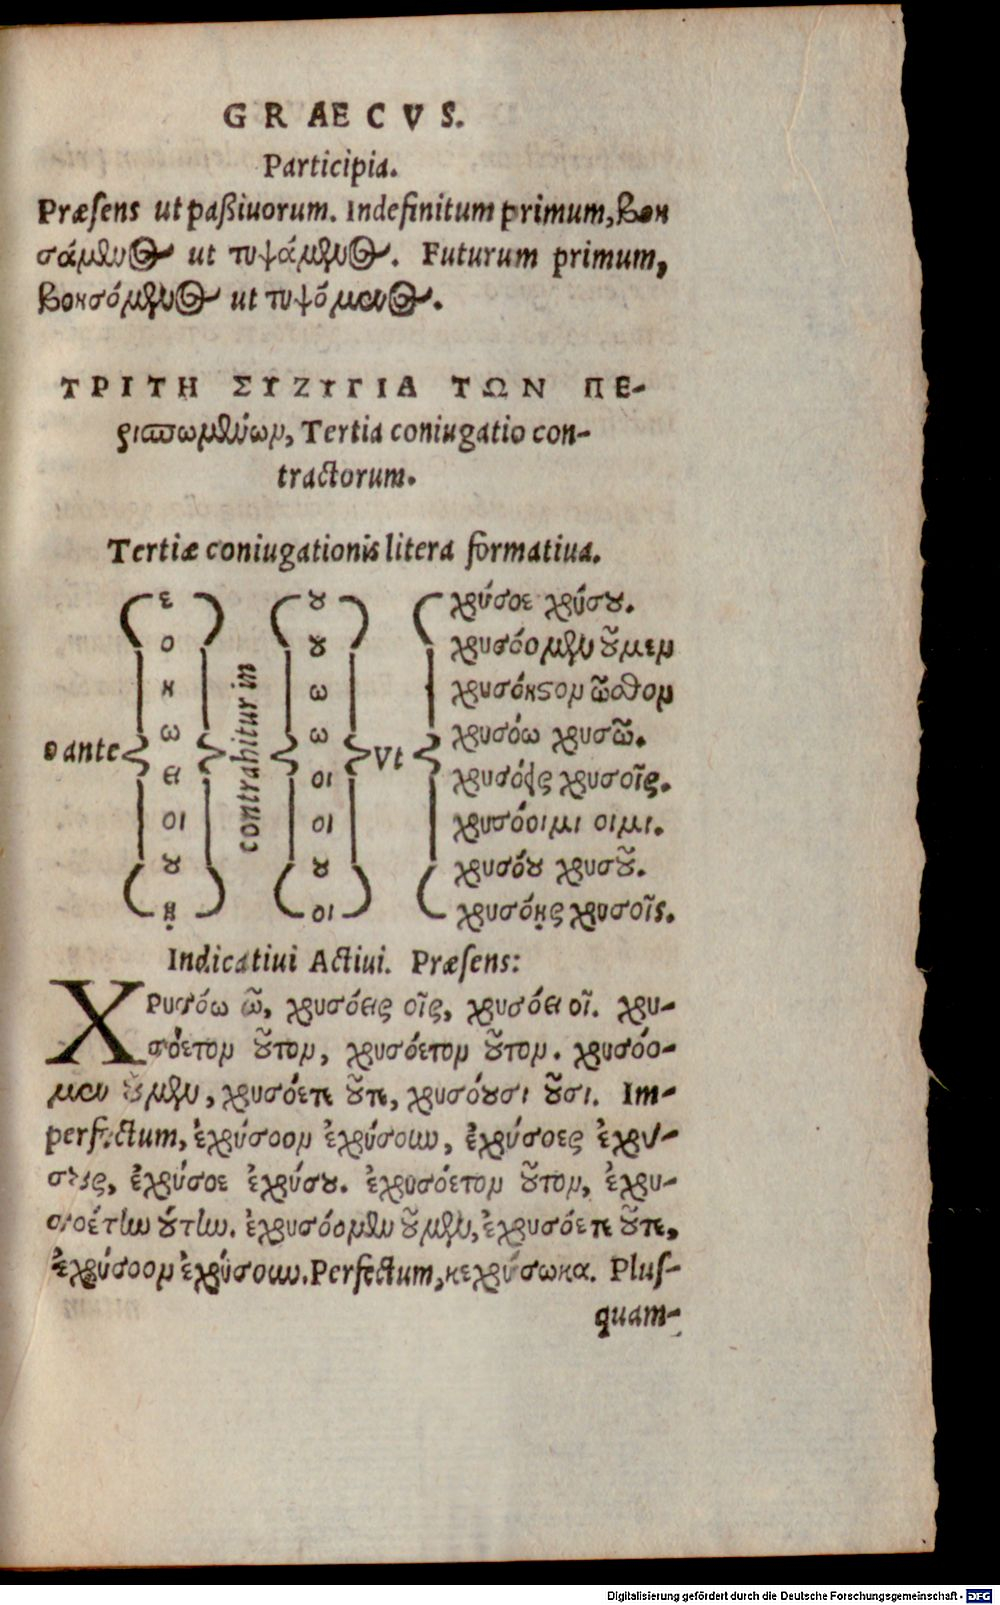 GRAECVS.
Participia.
Præsens ut paßiuorum. Indefinitum primum, βοη
σάμενος ut τυψάμενος. Futurum primum,
βοησόμενος ut τυψόμενος.
ΤΡΙΤΗ ΣΥΖΥΓΙΑ ΤΩΝ ΠΕ-
ρισπωμένων, Tertia coniugatio con-
tractorum.
Tertiæ coniugationis litera formatiua.
ε ȣ χρύσοε χρύσȣ.
ο ȣ χρυσόομεν ȣ͂μεν
η ω χρυσόητον ῶτον
ω ω χρυσόω χρυσῶ.
o ante contrahitur in Vt
ει οι χρυσόῃς χρυσοῖς.
οι οι χρυσόοιμι οιμι.
ȣ ȣ χρυσόȣ χρυσȣ͂.
ῃ οι χρυσόῃς χρυσοῖς.
Indicatiui Actiui. Præsens:
ΧΡυσόω ῶ, χρυσόεις οῖς, χρυσόει οῖ. χρυ-
σόετον ȣ͂τον, χρυσόετον ȣ͂τον. χρυσόο-
μεν ȣ͂μεν, χρυσόετε ȣ͂τε, χρυσόȣσι ȣ͂σι. Im-
perfectum, ἐχρύσοον ἐχρύσουν, ἐχρύσοες ἐχρύ-
σȣς, ἐχρύσοε ἐχρύσȣ. ἐχρυσόετον ȣ͂τον, ἐχρυ-
σοέτην ȣ́την. ἐχρυσόομεν ȣ͂μεν, ἐχρυσόετε ȣ͂τε,
ἐχρύσοον ἐχρύσουν. Perfectum, κεχρύσωκα. Plus-
quam-
Digitalisierung gefördert durch die Deutsche Forschungsgemeinschaft - DFG